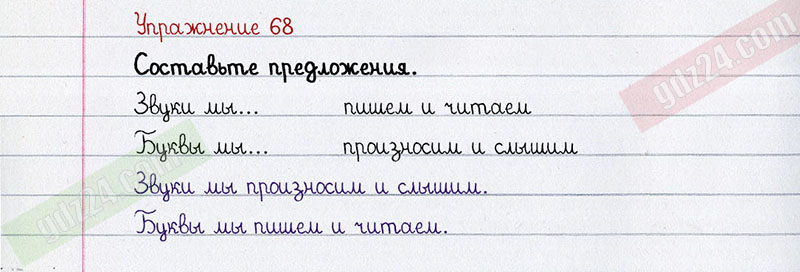 Упражнение 68
Составьте предложения.
Звуки мы... пишем и читаем
Буквы мы... произносим и слышим
Звуки мы произносим и слышим.
Буквы мы пишем и читаем.
gdz24.com
gdz24.com